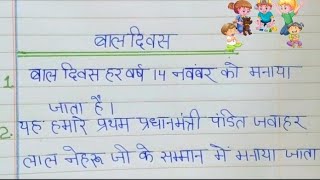 बाल दिवस
1. बाल दिवस हर वर्ष 14 नवंबर को मनाया
जाता है।
2. यह हमारे प्रथम प्रधानमंत्री पंडित जवाहर
लाल नेहरू जी के सम्मान में मनाया जाता